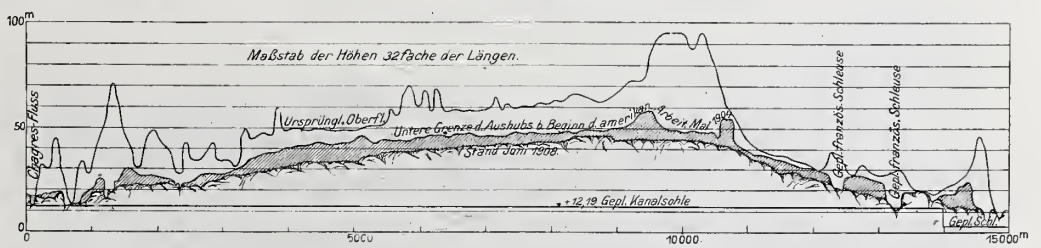 100 m
Maßstab der Höhen 32fache der Längen.
Chagres-Fluss
50
Ursprüngl. Oberfl.
Untere Grenze d. Aushubs b. Beginn d. amerikan. Arbeit Mai 1904
Stand Juni 1908.
Gepl. französ. Schleuse
Gepl. französ. Schleuse
+12,19 Gepl. Kanalsohle
Gepl. Schl.
0
0
5000
10000.
15000 m